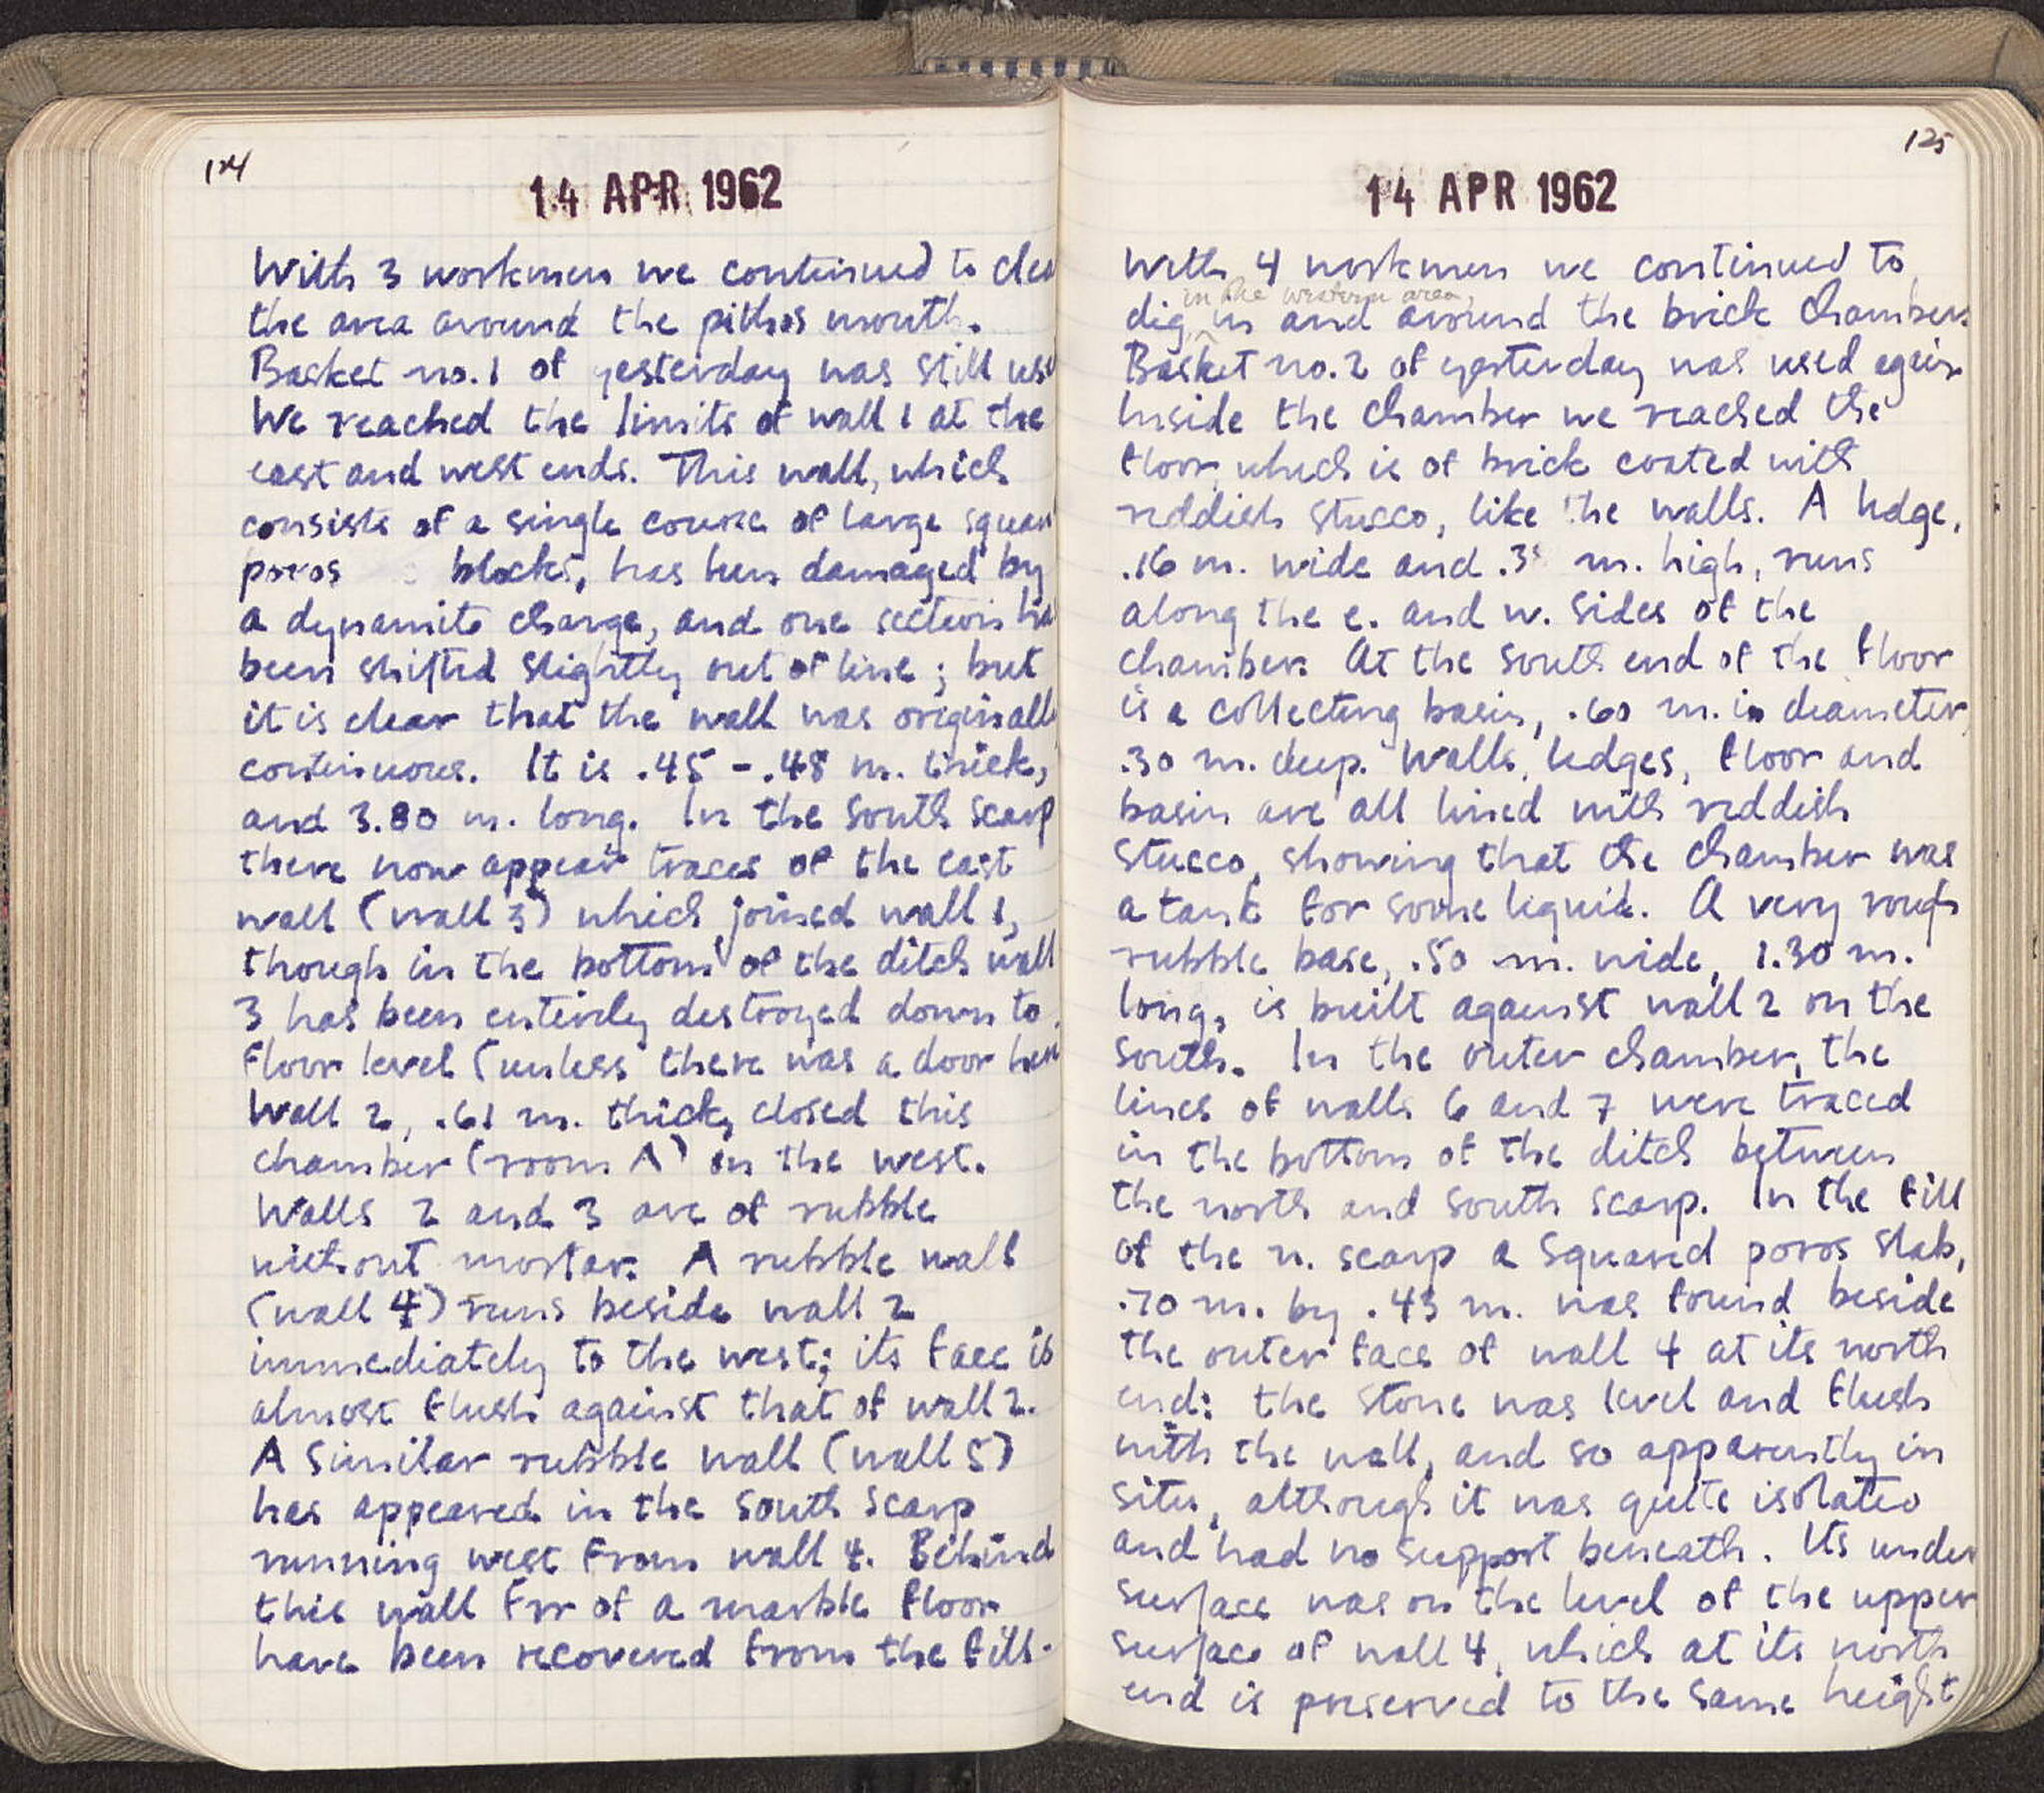 124
14 APR 1962
With 3 workmen we continued to clea
the area around the pithos mouth.
Basket no. 1 of yesterday was still use
We reached the limits of wall 1 at the
east and west ends. This wall, which
consists of a single course of large squar
poros blocks, has been damaged by
a dynamite charge, and one section ha
been shifted slightly out of line; but
it is clear that the wall was originall
continuous. It is .45 - .48 m. thick,
and 3.80 m. long. In the south scarp
there now appear traces of the east
wall (wall 3) which joined wall 1,
though in the bottom of the ditch wall
3 has been entirely destroyed down to
floor level (unless there was a door here
Wall 2, .61 m. thick, closed this
chamber (room A) on the west.
Walls 2 and 3 are of rubble
without mortar. A rubble wall
(wall 4) runs beside wall 2
immediately to the west; its face is
almost flush against that of wall 2.
A similar rubble wall (wall 5)
has appeared in the south scarp
running west from wall 4. Behind
this wall frr of a marble floor
have been recovered from the fill.
125
14 APR 1962
With 4 workmen we continued to
in the western area,
dig in and around the brick chamber.
Basket no. 2 of yesterday was used again
Inside the chamber we reached the
floor, which is of brick coated with
reddish stucco, like the walls. A ledge,
.16 m. wide and m. high, runs
along the e. and w. sides of the
chamber. At the south end of the floor
is a collecting basin, .60 m. in diameter,
.30 m. deep. Walls, ledges, floor and
basin are all lined with reddish
stucco, showing that the chamber was
a tank for some liquid. A very rough
rubble base, .50 m. wide, 1.30 m.
long, is built against wall 2 on the
south. In the outer chamber, the
lines of walls 6 and 7 were traced
in the bottom of the ditch between
the north and south scarp. In the fill
of the n. scarp a squared poros slab,
.70 m. by .43 m. was found beside
the outer face of wall 4 at its north
end: the stone was level and flush
with the wall, and so apparently in
situ, although it was quite isolated
and had no support beneath. Its under
surface was on the level of the upper
surface of wall 4, which at its north
end is preserved to the same height